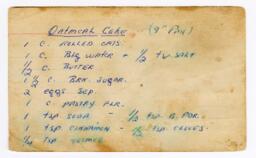 Oatmeal Cake (9" Pan)
1 C. Rolled Oats.
1 C. Blg Water + 1/2 tsp. Salt
1/2 C. Butter
1 1/2 C. Brn. Sugar.
2 Eggs Sep.
1 C. Pastry Flr.
1 tsp. Soda - 1/2 tsp B. Pdr.
1 tsp. Cinnamon - 1/2 tsp. Cloves.
1/2 tsp. Nutmeg